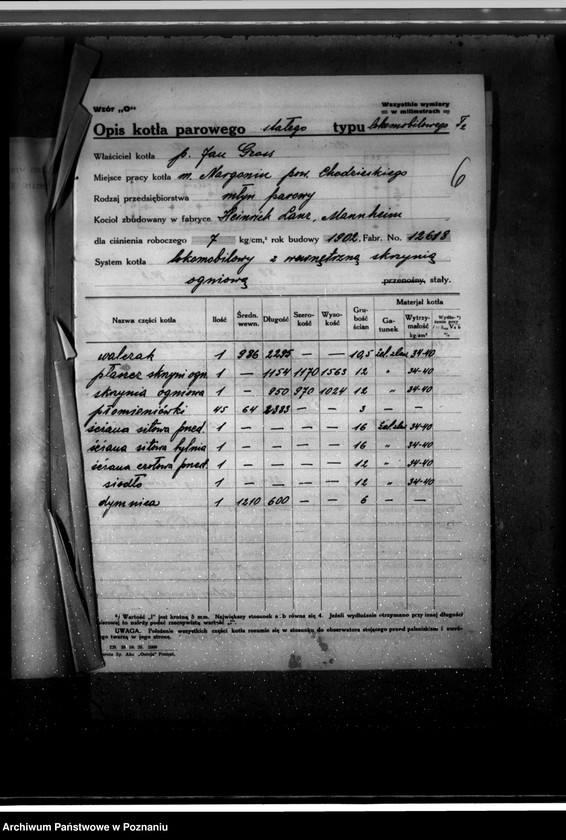 Wzór „O“
Wszystkie wymiary
w milimetrach
Opis kotła parowego stałego typu lokomobilowego
6
Właściciel kotła p. Jan Gross
Miejsce pracy kotła m. Margonin pow. Chodzieskiego
Rodzaj przedsiębiorstwa młyn parowy
Kocioł zbudowany w fabryce Heinrich Lanz, Mannheim
dla ciśnienia roboczego 7 kg/cm,² rok budowy 1902. Fabr. No. 12618
System kotła lokomobilowy z wewnętrzną skrzynią
ogniową przenośny, stały.
Nazwa części kotła Ilość Średn. wewn. Długość Szerokość Wysokość Grubość ścian Materjał kotła Gatunek Wytrzymałość kg/mm²
walczak 1 986 2295 — — 10,5 34-40
płaszcz skrzyni ogn. 1 — 1154 1170 1563 12 „ 34-40
skrzynia ogniowa 1 — 950 970 1024 12 „ 34-40
płomieniówki 45 64 2383 — — 3 — —
ściana sitowa przed. 1 — — — — 16 34-40
ściana sitowa tylnia 1 — — — — 16 „ 34-40
ściana czołowa przed. 1 — — — — 12 „ 34-40
siodło 1 — — — — 12 „ 34-40
dymnica 1 1210 600 — — 6 — —
*) Wartość „l“ jest krotną 5 mm. Największy stosunek a : b równa się 4. Jeżeli wydłużenie otrzymano przy innej długości
pomiarowej to należy podać rzeczywistą wartość „l“.
UWAGA. Położenie wszystkich części kotła rozumie się w stosunku do obserwatora stojącego przed paleniskiem i zwróconego twarzą w jego stronę.
Archiwum Państwowe w Poznaniu